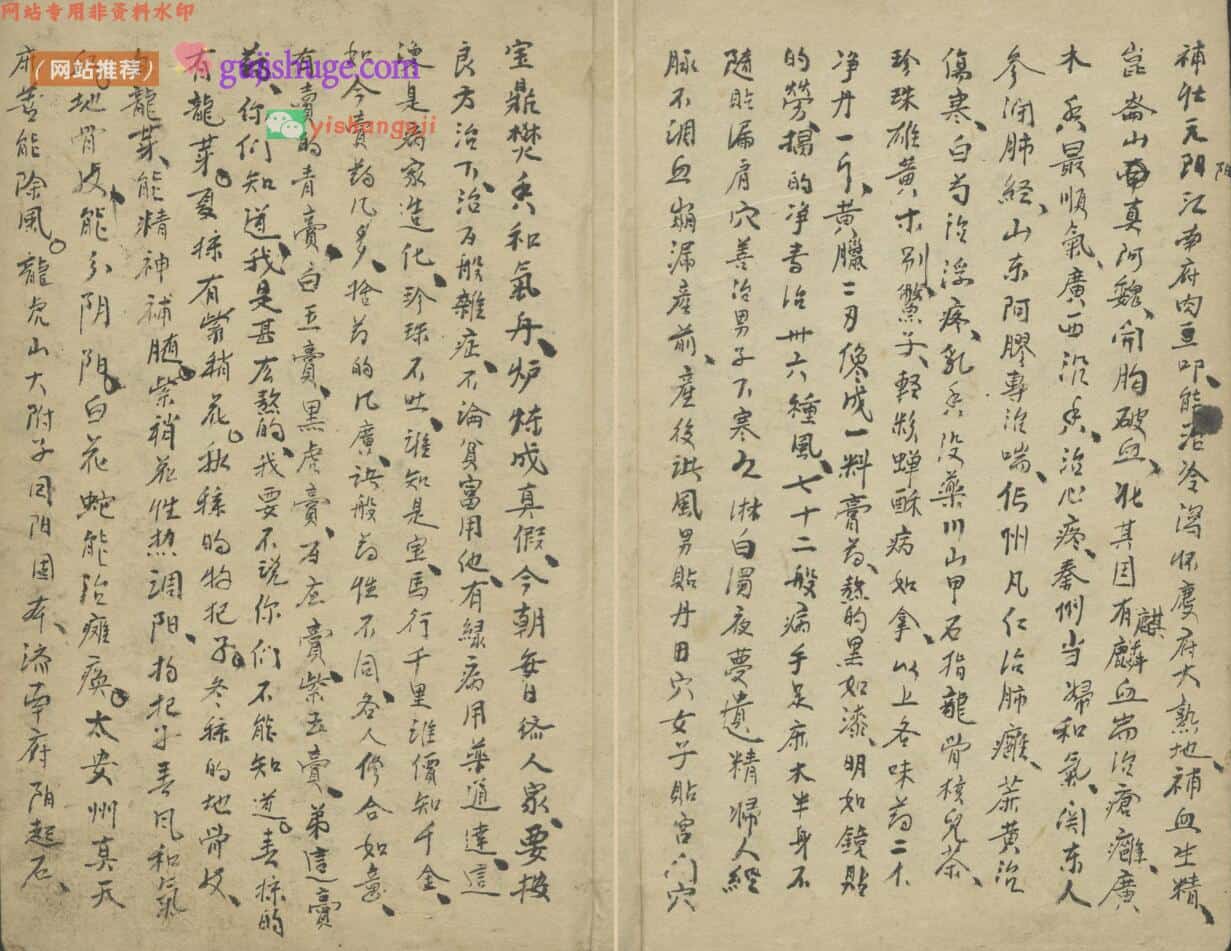 网站专用非资料水印
（网站推荐）
gujishuge.com
yishangji
補壮元阳江南府肉豆叩、能治冷瀉怀慶府大熟地、補血生精、
崑崙山真阿魏、開胸破血、其国有麒麟血耑治瘡癰、廣
木香最順氣、廣西沉香、治心疼、秦州当婦和氣、関东人
参润肺經、山东阿膠專治喘、州凡仁治肺癰、茶黄治
傷寒、白芍治浮疼、乳香没藥川山甲石指龍骨核児茶、
珍珠雄黄木别鱉子、軽粉蝉酥病如拿、以上各味药二十
净丹一斤、黄臘二刃俻成一料膏药、熬的黑如漆、明如鏡貼
的勞揚的净書治卅六種風、七十二般病手足麻木半身不
隨漏肩穴善治男子下寒久淋白濁夜夢遺精婦人經
脉不调血崩漏產前、產後諕風男貼丹田穴女子貼宫门穴
宝鼎焚香和氣丹、炉炼成真假、今朝每日络人家、要按
良方治下、治百般雜症、不論貧富用他、有緑病用藥通達、這
便是病家造化、珍珠不吐、谁知是宝、馬行千里谁價知千金、
如今賣药几多、捨药的几廣、諕般药性不同、各人修合如意、
有賣的青膏、白玉膏、黑虎膏、百应膏、紫玉膏、弟這膏
药、你们知道、我是甚么熬的、我要不说你们不能知道。春採的
有龍芽。夏採有紫稍花。秋採的枸杞子。冬採的地骨皮、
白龍芽、能精神補随。紫稍花性热調阳、枸杞子善風和氣
地骨皮、能分阴阳。白花蛇能治癱瘓。太安州真天
麻善能除風。龍虎山大附子固阳固本、济南府阳起石、